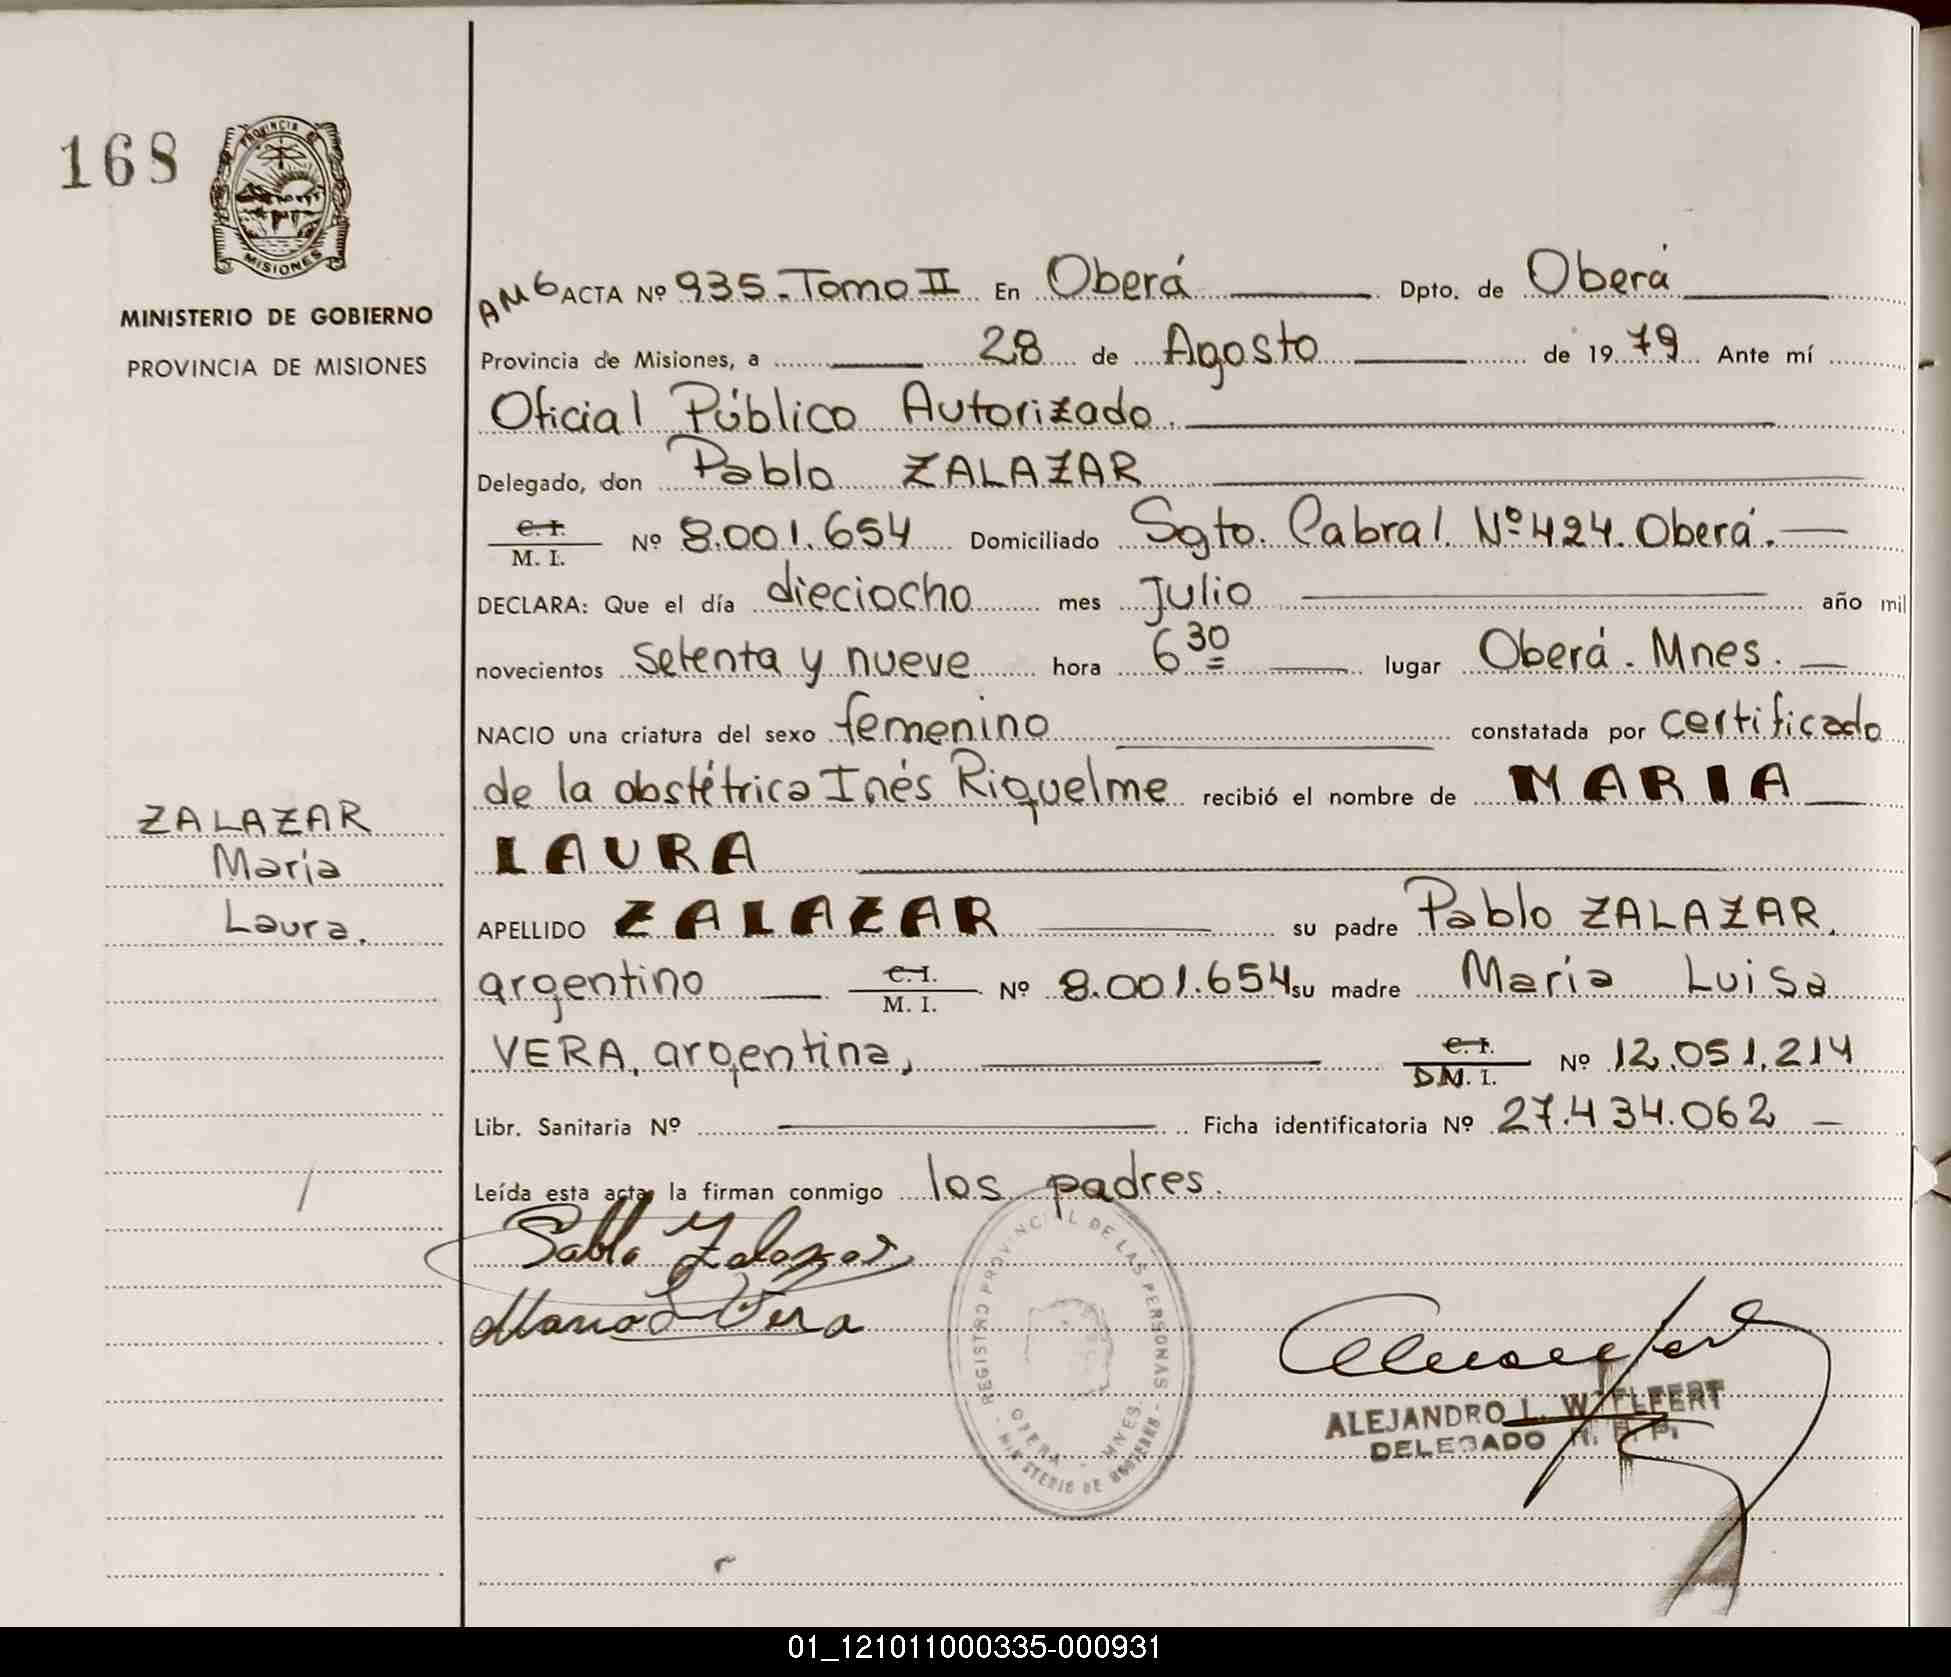 168
PROVINCIA DE
MISIONES
MINISTERIO DE GOBIERNO
PROVINCIA DE MISIONES
ZALAZAR
María
Laura.
AMG ACTA Nº 935.-Tomo II En Oberá Dpto. de Oberá
Provincia de Misiones, a 28 de Agosto de 1979 Ante mí
Oficial Público Autorizado.
Delegado, don Pablo ZALAZAR
C.I. / M. I. Nº 8.001.654 Domiciliado Sgto. Cabral Nº 424. Oberá.
DECLARA: Que el día dieciocho mes Julio año mil
novecientos setenta y nueve hora 6 30 lugar Oberá. Mnes.
NACIO una criatura del sexo femenino constatada por certificado
de la obstétrica Inés Riquelme recibió el nombre de MARIA
LAURA
APELLIDO ZALAZAR su padre Pablo ZALAZAR,
argentino C.I. / M. I. Nº 8.001.654 su madre María Luisa
VERA, argentina, C.I. / D.N.I. Nº 12.051.214
Libr. Sanitaria Nº Ficha identificatoria Nº 27.434.062
Leída esta acta, la firman conmigo los padres.
Pablo Zalazar
Maria L Vera
REGISTRO PROVINCIAL DE LAS PERSONAS
OBERA - MNES.
MINISTERIO DE GOBIERNO
ALEJANDRO L.
DELEGADO R. P. P.
01_121011000335-000931